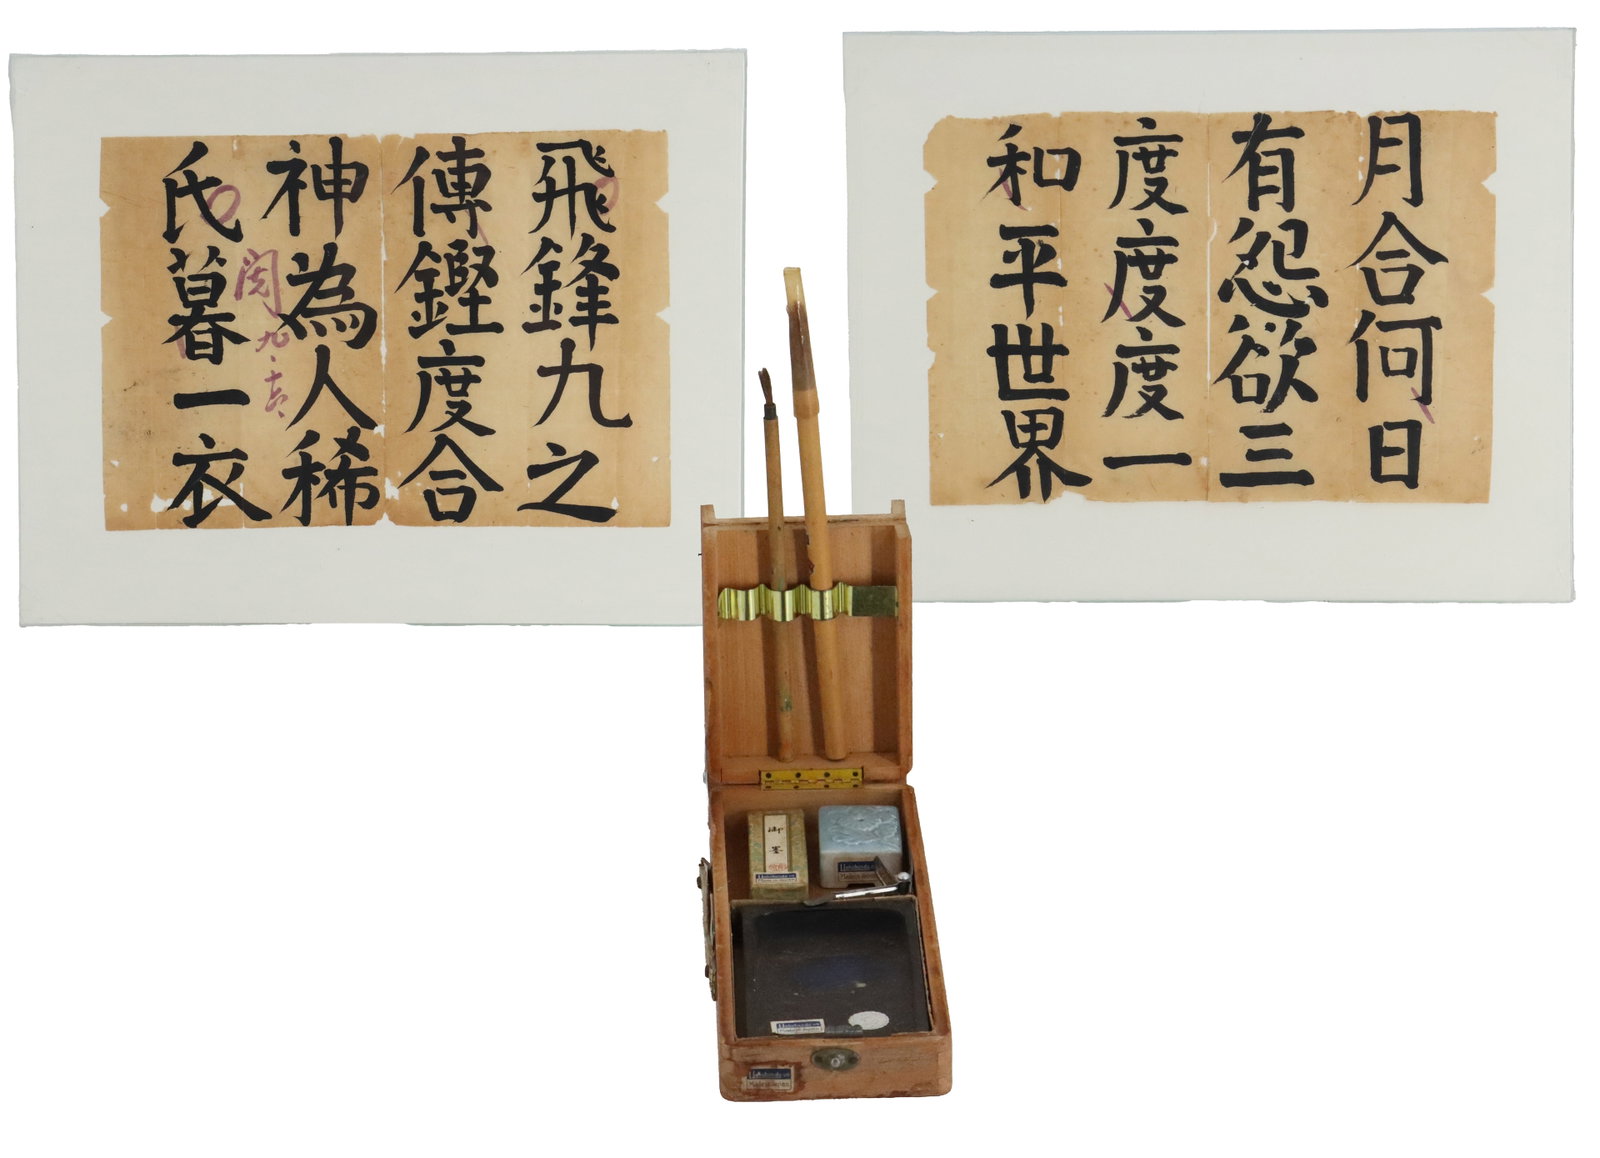 飛鋒九之
傳鏗度合
神為人稀
氏暮一衣
閱
月合何日
有怨欲三
度度度一
和平世界
御墨
Made in Japan